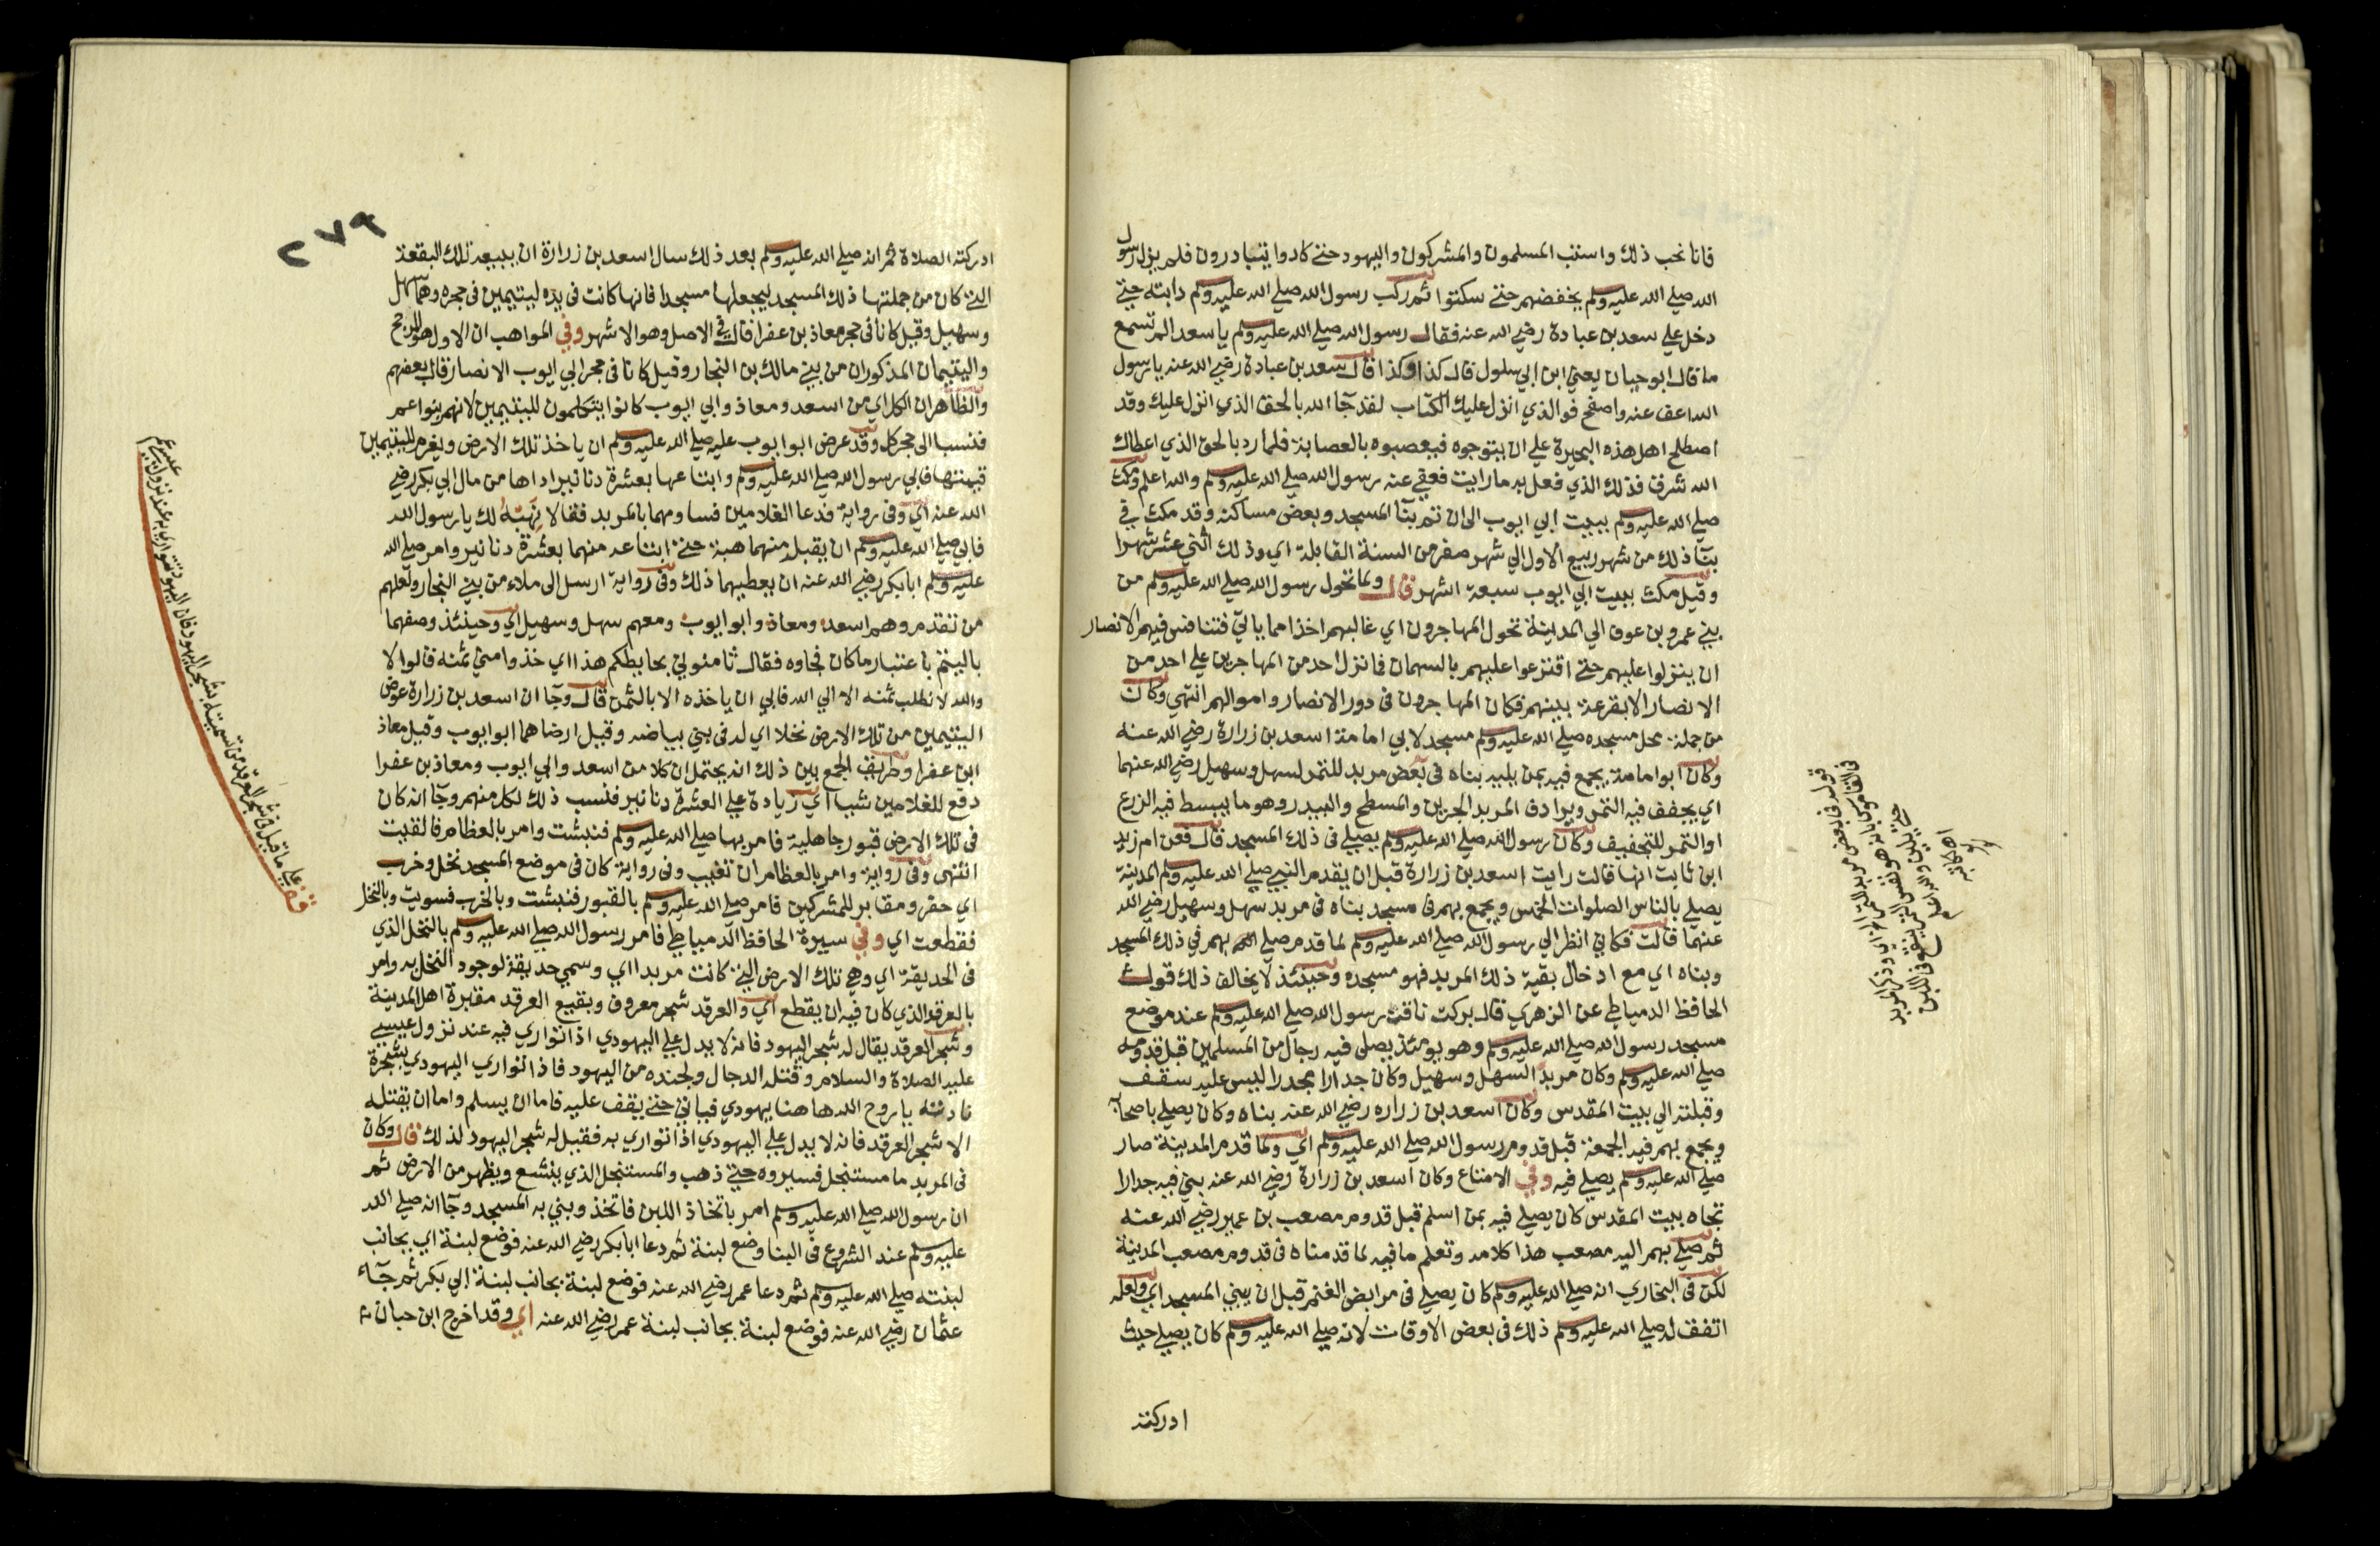 فانا نحب ذلك واستب المسلمون والمشركون واليهود حتى كادوا يتبادرون فلم يزل رسول
الله صلى الله عليه وسلم يخفضهم حتى سكتوا ثم ركب رسول الله صلى الله عليه وسلم دابته حتى
دخل على سعد بن عبادة رضي الله عنه فقال رسول الله صلى الله عليه وسلم يا سعد الم تسمع
ما قال ابو حباب يعني ابن ابي سلول قال كذا وكذا قال سعد بن عبادة رضي الله عنه يا رسول
الله اعف عنه واصفح فوالذي انزل عليك الكتاب لقد جآ الله بالحق الذي انزل عليك وقد
اصطلح اهل هذه البحيرة على ان يتوجوه فيعصبوه بالعصابة فلما رد بالحق الذي اعطاك
الله شرق فذلك الذي فعل به ما رايت فعفى عنه رسول الله صلى الله عليه وسلم والله اعلم ومكث
صلى الله عليه وسلم ببيت ابي ايوب الى ان تم بنآ المسجد وبعض مساكنه وقد مكث في
بنآ ذلك من شهر ربيع الاول الي شهر صفر من السنة القابلة اي وذلك اثني عشر شهرا
وقيل مكث ببيت ابي ايوب سبعة اشهر قال ولما تحول رسول الله صلى الله عليه وسلم من
بني عمرو بن عوف الي المدينة تحول المهاجرون اي غالبهم اخذا مما ياتي فتنافس فيهم الانصار
ان ينزلوا عليهم حتى اقترعوا عليهم بالسهمان فما نزل احد من المهاجرين على احد من
الانصار الا بقرعة بينهم فكان المهاجرون في دور الانصار واموالهم انتهى وكان
من جملة محل مسجده صلى الله عليه وسلم مسجد لابي امامة اسعد بن زرارة رضي الله عنه
وكان ابو امامة يجمع فيه بمن يليه بناه في بعض مربد للتمر لسهل وسهيل رضي الله عنهما
اي يجفف فيه التمر ويرادف المربد الجرين والمسطح والبيدر وهو ما يبسط فيه الزرع
او التمر للتجفيف وكان رسول الله صلى الله عليه وسلم يصلي في ذلك المسجد قال فعن ام زيد
ابن ثابت انها قالت رايت اسعد بن زرارة قبل ان يقدم النبي صلى الله عليه وسلم المدينة
يصلي بالناس الصلوات الخمس ويجمع بهم في مسجد بناه في مربد سهل وسهيل رضي الله
عنهما قالت فكاني انظر الي رسول الله صلى الله عليه وسلم لما قدم صلى بهم في ذلك المسجد
وبناه اي مع ادخال بقية ذلك المربد فهو مسجده وحينئذ لا يخالف ذلك قول
الحافظ الدمياطي عن الزهري قال بركت ناقة رسول الله صلى الله عليه وسلم عند موضع
مسجد رسول الله صلى الله عليه وسلم وهو يومئذ يصلي فيه رجال من المسلمين قبل قدومه
صلى الله عليه وسلم وكان مربدا لسهل وسهيل وكان جدارا مجدرا ليس عليه سقف
وقبلته الي بيت المقدس وكان اسعد بن زراره رضي الله عنه بناه وكان يصلي باصحابه
ويجمع بهم فيه الجمعة قبل قدوم رسول الله صلى الله عليه وسلم اي ولما قدم المدينة صار
صلى الله عليه وسلم يصلي فيه وفي الامتاع وكان اسعد بن زرارة رضي الله عنه بني فيه جدارا
تجاه بيت المقدس كان يصلي فيه بمن اسلم قبل قدوم مصعب بن عمير رضي الله عنه
ثم صلى بهم اليه مصعب هذا كلامه وتعلم ما فيه لما قدمناه في قدوم مصعب المدينة
لكن في البخاري انه صلى الله عليه وسلم كان يصلي في مرابض الغنم قبل ان يبني المسجد اي ولعله
اتفق له صلى الله عليه وسلم ذلك في بعض الاوقات لانه صلى الله عليه وسلم كان يصلي حيث
ادركته
قوله في بعض مربد للتمر وذكر المربد
في القاموس بانه هو نفس التمر ينقع في اللبن
حتى يلين والله اعلم
اه كاتبه
٢٧٩
ادركته الصلاة ثم انه صلى الله عليه وسلم بعد ذلك سال اسعد بن زرارة ان يبيعه تلك البقعة
التي كان من جملتها ذلك المسجد ليجعلها مسجدا فانها كانت في يده ليتيمين في حجره وهما سهل
وسهيل وقيل كانا في حجر معاذ بن عفرا قال في الاصل وهو الاشهر وفي المواهب ان الاول هو المرجح
واليتيمان المذكوران من بني مالك بن النجار وقيل كانا في حجر ابي ايوب الانصار قال بعضهم
والظاهر ان الكل اي من اسعد ومعاذ وابي ايوب كانوا يتكلمون لليتيمين لانهم بنوا عم
فنسبا الى حجر كل وقد عرض ابو ايوب عليه صلى الله عليه وسلم ان ياخذ تلك الارض ويغرم لليتيمين
قيمتها فابي رسول الله صلى الله عليه وسلم وابتاعها بعشرة دنانير اداها من مال ابي بكر رضي
الله عنه اي وفي رواية فدعا الغلامين فساومهما بالمربد فقالا نهبه لك يا رسول الله
فابي صلى الله عليه وسلم ان يقبله منهما هبة حتى ابتاعه منهما بعشرة دنانير وامر صلى الله
عليه وسلم ابا بكر رضي الله عنه ان يعطيهما ذلك وفي رواية ارسل الى ملاء من بني النجار ولعلهم
من تقدم وهم اسعد ومعاذ وابو ايوب ومعهم سهل وسهيل اي وحينئذ وصفهما
باليتم باعتبار ما كان فجاوه فقال ثامنوني بحايطكم هذا اي خذوا مني ثمنه قالوا لا
والله لا نطلب ثمنه الا الي الله فابي ان ياخذه الا بالثمن قال وجآ ان اسعد بن زرارة عوض
اليتيمين من تلك الارض نخلا اي له في بني بياضه وقيل ارضاهما ابو ايوب وقيل معاذ
ابن عفرا وطريق الجمع بين ذلك انه يحتمل ان كلا من اسعد وابي ايوب ومعاذ بن عفرا
دفع للغلامين شيا اي زيادة على العشرة دنانير فنسب ذلك لكل منهم وجآ انه كان
في تلك الارض قبور جاهلية فامر بها صلى الله عليه وسلم فنبشت وامر بالعظام فالقيت
انتهى وفي رواية وامر بالعظام ان تغيب وفي رواية كان في موضع المسجد نخل وخرب
اي حفر ومقابر للمشركين فامر صلى الله عليه وسلم بالقبور فنبشت وبالخرب فسويت وبالنخل
فقطعت اي وفي سيرة الحافظ الدمياطي فامر رسول الله صلى الله عليه وسلم بالنخل الذي
في الحديقة اي وهي تلك الارض التي كانت مربدا اي وسمي حديقة لوجود النخل به وامر
بالغرقد الذي كان فيه ان يقطع اي والغرقد شجر معروف وبقيع الغرقد مقبرة اهل المدينة
وشجر الغرقد يقال له شجر اليهود فانه لا يدل على اليهودي اذا تواري فيه عند نزول عيسى
عليه الصلاة والسلام وقتله الدجال ولجنده من اليهود فاذا تواري اليهودي بشجرة
نادته يا روح الله هاهنا يهودي فياتي حتى يقف عليه فاما ان يسلم واما ان يقتله
الا شجر الغرقد فانه لا يدل على اليهودي اذا تواري به فقيل له شجر اليهود لذلك قال وكان
في المربد ما مستنجل فسيروه حتى ذهب والمستنجل الذي ينشع ويظهر من الارض ثم
ان رسول الله صلى الله عليه وسلم امر باتخاذ اللبن فاتخذ وبني به المسجد وجآ انه صلى الله
عليه وسلم عند الشروع في البنا وضع لبنة ثم دعا ابا بكر رضي الله عنه فوضع لبنة اي بجانب
لبنته صلى الله عليه وسلم ثم دعا عمر رضي الله عنه فوضع لبنة بجانب لبنة ابي بكر ثم جآء
عثمان رضي الله عنه فوضع لبنة بجانب لبنة عمر رضي الله عنه اي وقد اخرج ابن حبان
قف على ما قيل في شجر الغرقد من تسميته بشجر اليهود فان اليهود تتواري به عند نزول عيسى